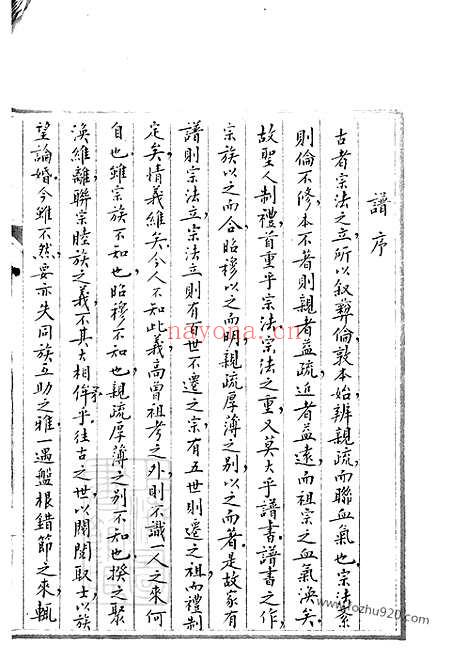 譜序
古者宗法之立所以叙彝倫敦本始辨親疏而聯血氣也宗法紊
則倫不修本不著則親者益疏近者益遠而祖宗之血氣渙矣
故聖人制禮首重乎宗法宗法之重又莫大乎譜書譜書之作
宗族以之而合昭穆以之而明親疏厚薄之別以之而著是故家有
譜則宗法立宗法立則有百世不遷之宗有五世則遷之祖而禮制
定矣情義維矣今人不知此義高曾祖考之外則不識一人之來何
自也雖宗族不知也昭穆不知也親疏厚薄之別不知也揆之聚
渙維離聯宗睦族之義不其大相矛乎往古之世以閥閱取士以族
望論婚今雖不然要亦失同族互助之雅一遇盤根錯節之來輒
nayona.cn
www.fozhu920.com